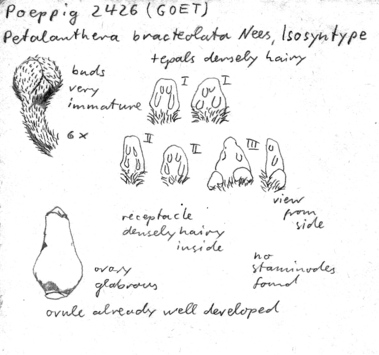 Poeppig 2426 (GOET)
Petalanthera bracteolata Nees, Isosyntype
+ tepals densely hairy
buds
very
immature
6x
I
I
II
II
III
view
from
side
receptacle
densely hairy
inside
ovary
glabrous
no
staminodes
found
ovule already well developed